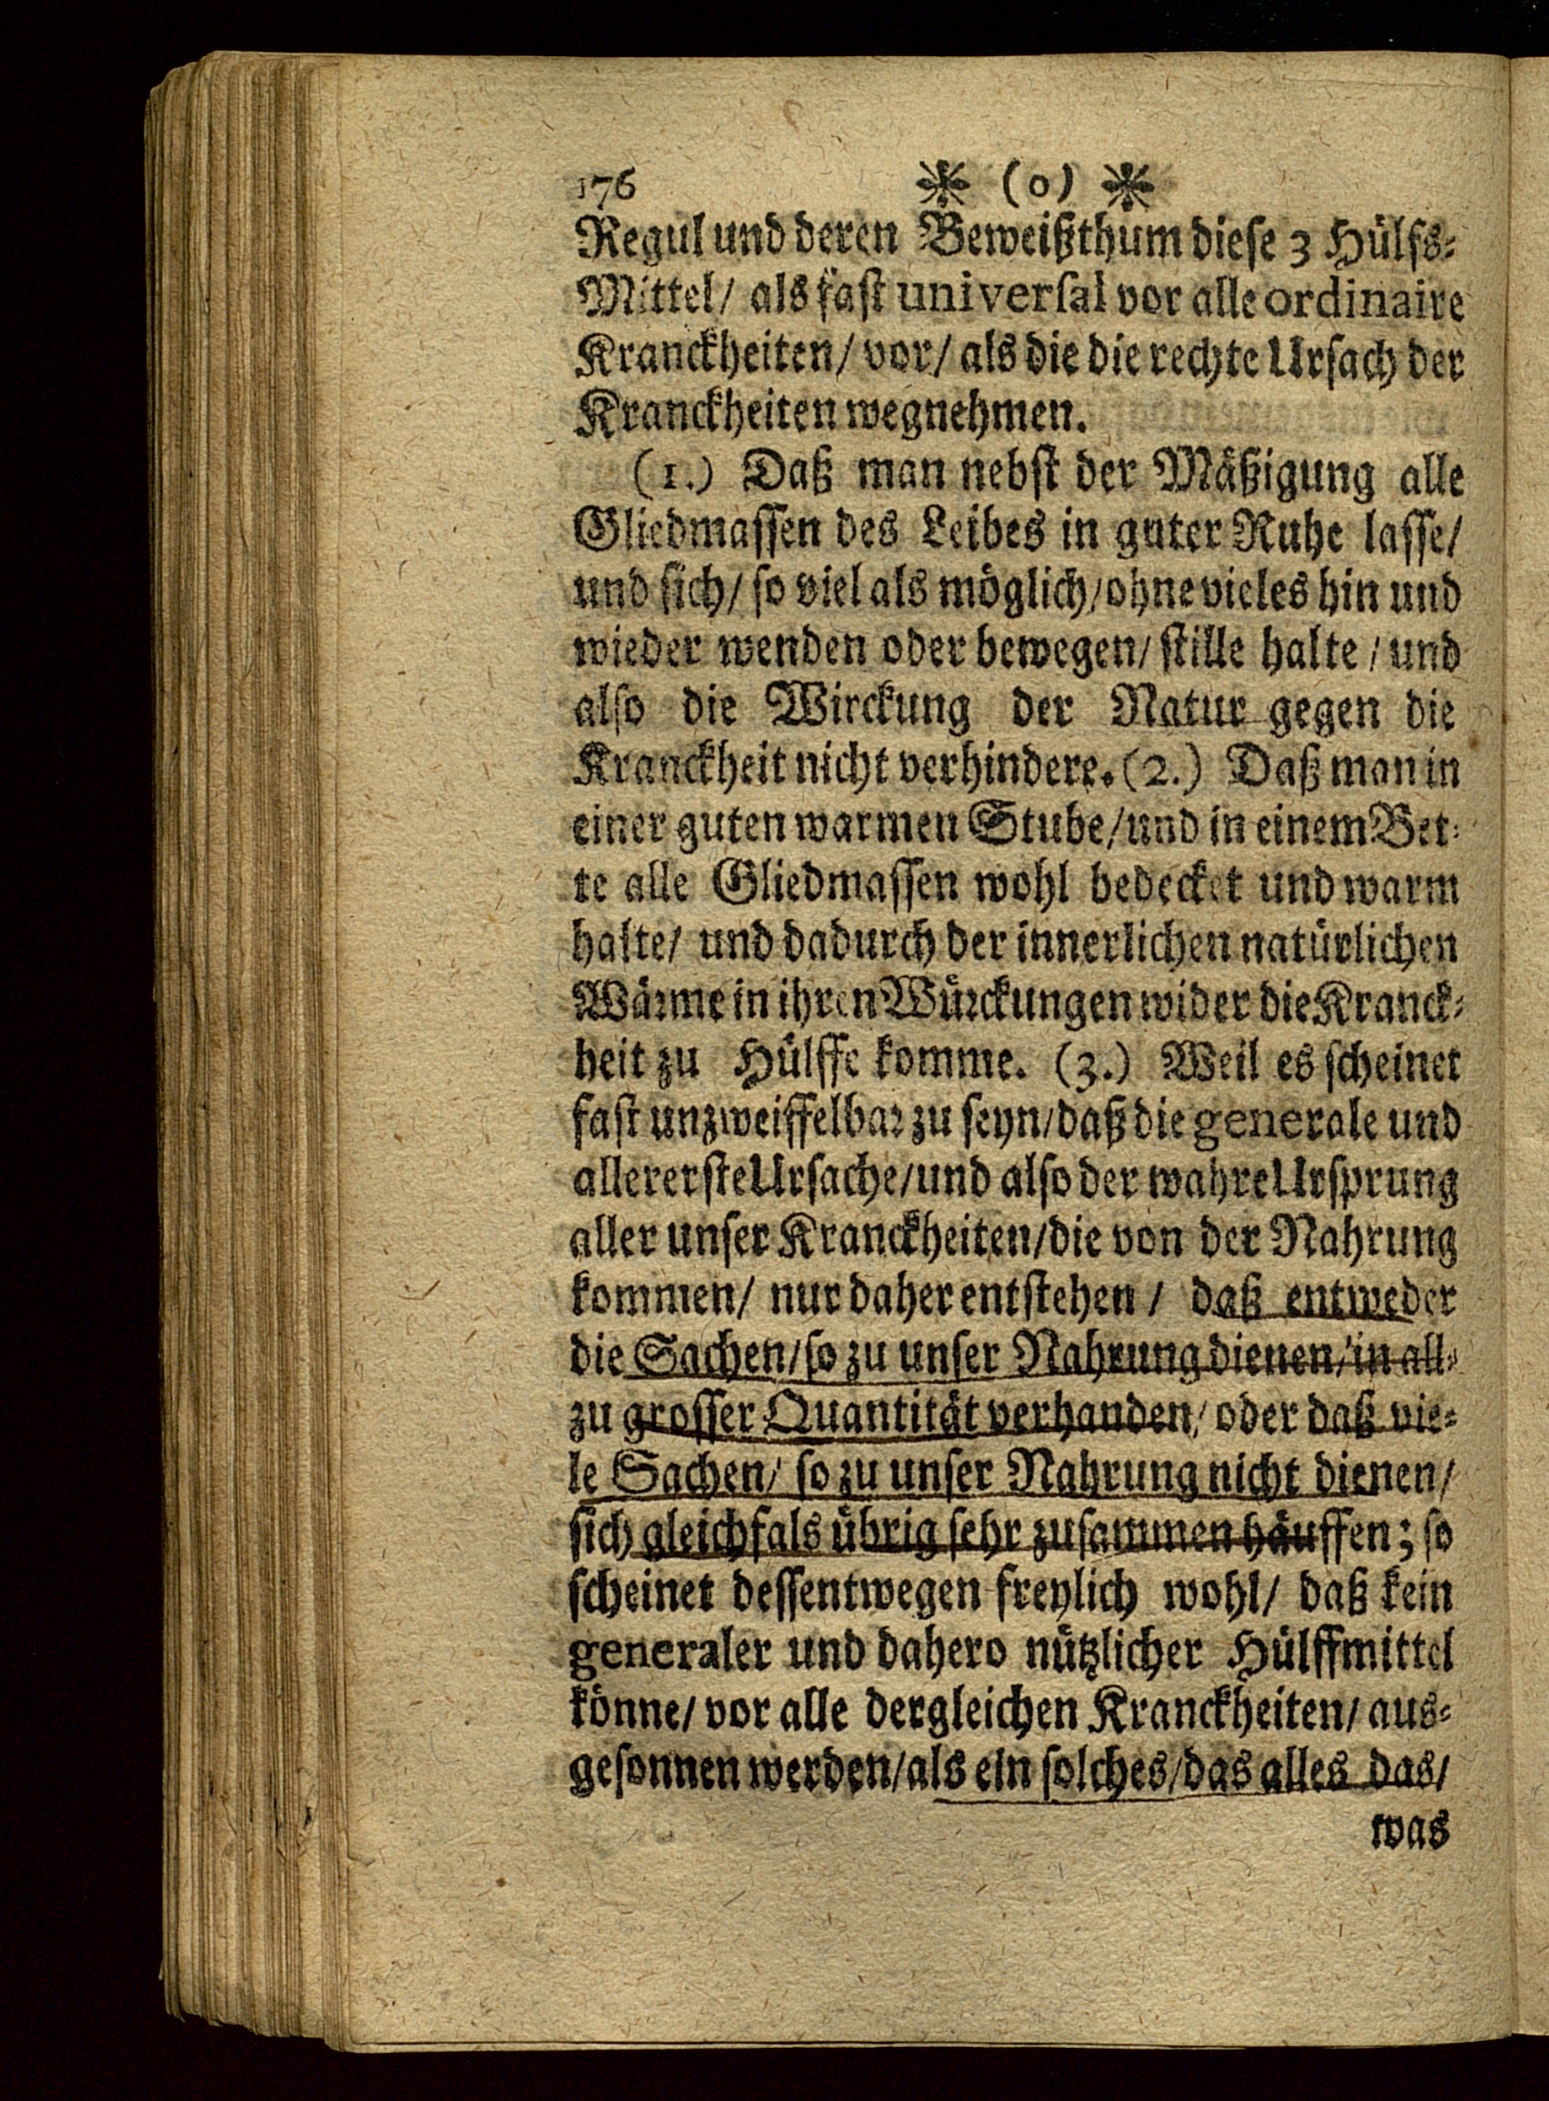 176 * (o) *
Regul und deren Beweißthum diese 3 Hülfs-
Mittel/ als fast universal vor alle ordinaire
Kranckheiten/ vor/ als die die rechte Ursach der
Kranckheiten wegnehmen.
(1.) Daß man nebst der Mäßigung alle
Gliedmassen des Leibes in guter Ruhe lasse/
und sich/ so viel als möglich/ ohne vieles hin und
wieder wenden oder bewegen/ stille halte / und
also die Wirckung der Natur gegen die
Kranckheit nicht verhindere. (2.) Daß man in
einer guten warmen Stube/ und in einem Bet-
te alle Gliedmassen wohl bedecket und warm
halte/ und dadurch der innerlichen natürlichen
Wärme in ihren Würckungen wider die Kranck-
heit zu Hülffe komme. (3.) Weil es scheinet
fast unzweiffelbar zu seyn/ daß die generale und
allererste Ursache/ und also der wahre Ursprung
aller unser Kranckheiten/ die von der Nahrung
kommen/ nur daher entstehen / daß entweder
die Sachen/ so zu unser Nahrung dienen/ in all-
zu grosser Quantität verhanden/ oder daß vie-
le Sachen/ so zu unser Nahrung nicht dienen/
sich gleichfals übrig sehr zusammen häuffen; so
scheinet dessentwegen freylich wohl/ daß kein
generaler und dahero nützlicher Hülffmittel
könne/ vor alle dergleichen Kranckheiten/ aus-
gesonnen werden/ als ein solches/ das alles das/
was